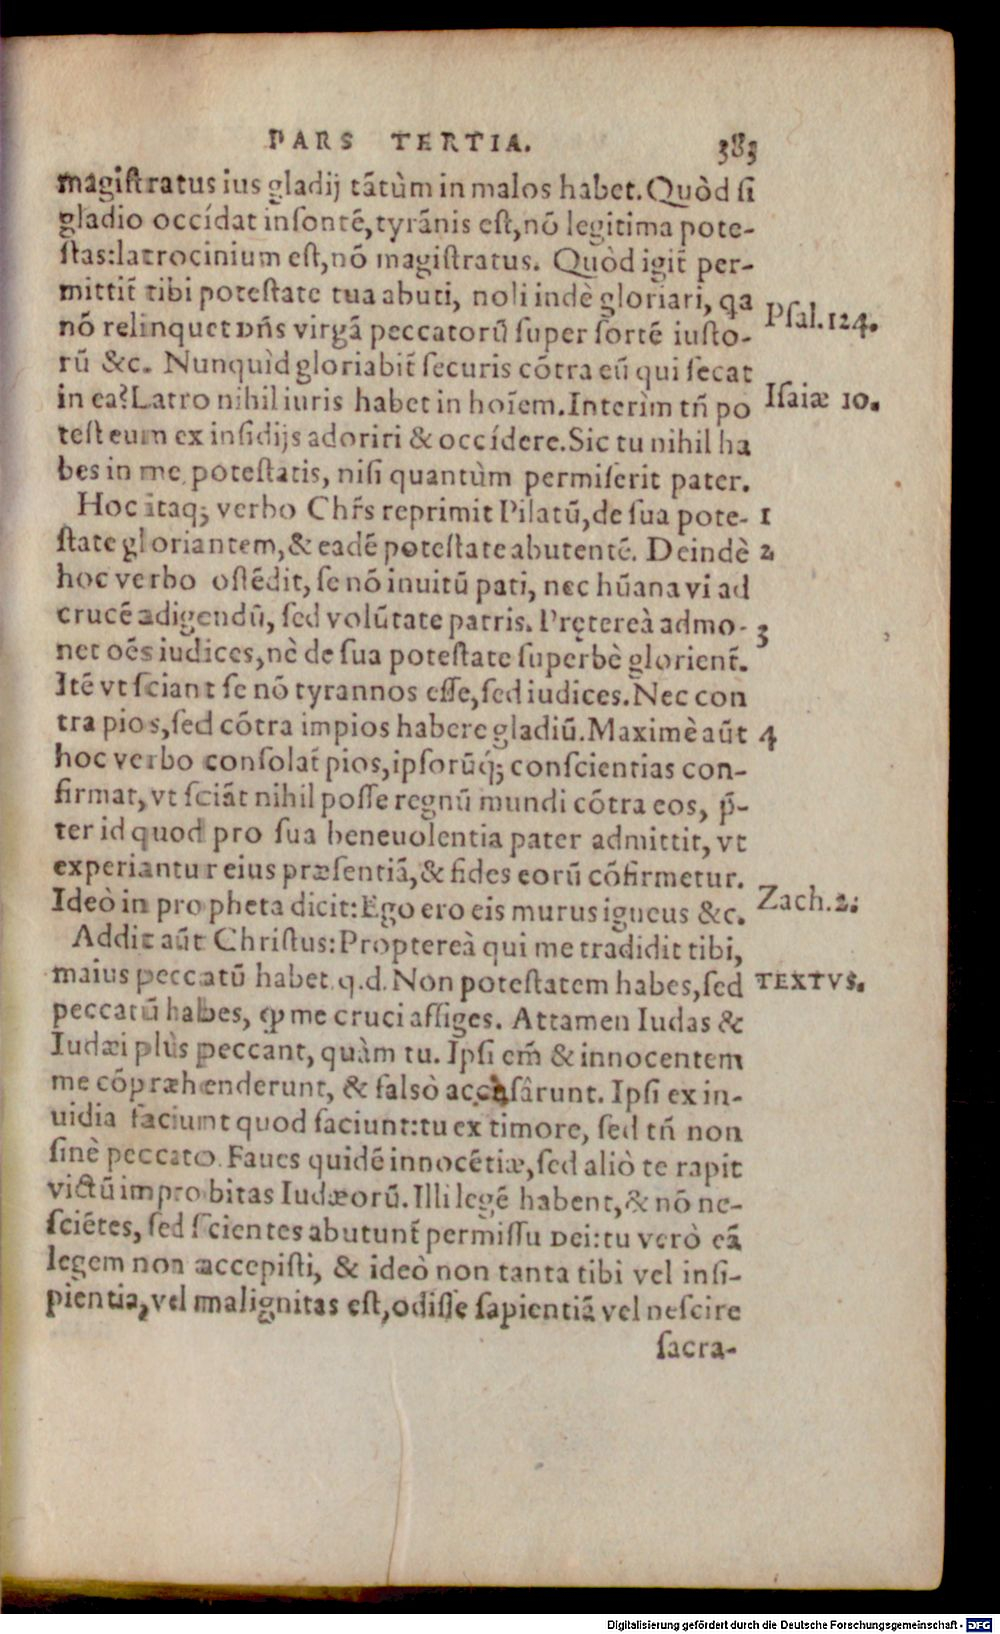 PARS TERTIA. 383
magiſtratus ius gladij tãtùm in malos habet. Quòd ſi
gladio occídat inſontẽ, tyrãnis eſt, nõ legitima pote-
ſtas: latrocinium eſt, nõ magiſtratus. Quòd igit̃ per-
mittit̃ tibi poteſtate tua abuti, noli indè gloriari, qa
nõ relinquet DÑS virgã peccatorũ ſuper ſortẽ iuſto- Pſal. 124.
rũ &c. Nunquìd gloriabit̃ ſecuris cõtra eũ qui ſecat
in ea? Latro nihil iuris habet in hoĩem. Interìm tñ po Iſaiæ 10.
teſt eum ex inſidijs adoriri & occídere. Sic tu nihil ha
bes in me poteſtatis, niſi quantùm permiſerit pater.
Hoc itaq; verbo Chr̃s reprimit Pilatũ, de ſua pote- 1
ſtate gloriantem, & eadẽ poteſtate abutentẽ. Deindè 2
hoc verbo oſtẽdit, ſe nõ inuitũ pati, nec hũana vi ad
crucẽ adigendũ, ſed volũtate patris. Prętereà admo- 3
net oẽs iudices, nè de ſua poteſtate ſuperbè glorient̃.
Itẽ vt ſciant ſe nõ tyrannos eſſe, ſed iudices. Nec con
tra pios, ſed cõtra impios habere gladiũ. Maximè aũt 4
hoc verbo conſolat̃ pios, ipſorũq́; conſcientias con-
firmat, vt ſciãt nihil poſſe regnũ mundi cõtra eos, p̃-
ter id quod pro ſua beneuolentia pater admittit, vt
experiantur eius præſentiã, & fides eorũ cõfirmetur.
Ideò in propheta dicit: Ego ero eis murus igneus &c. Zach. 2.
Addit aũt Chriſtus: Proptereà qui me tradidit tibi,
maius peccatũ habet. q.d. Non poteſtatem habes, ſed TEXTVS.
peccatũ habes, ꝙ me cruci affiges. Attamen Iudas &
Iudæi plùs peccant, quàm tu. Ipſi em̃ & innocentem
me cõpræhenderunt, & falsò accusârunt. Ipſi ex in-
uidia faciunt quod faciunt: tu ex timore, ſed tñ non
ſinè peccato. Faues quidẽ innocẽtiæ, ſed aliò te rapit
victũ improbitas Iudæorũ. Illi legẽ habent, & nõ ne-
ſciẽtes, ſed ſcientes abutunt̃ permiſſu DEI: tu verò eã
legem non accepiſti, & ideò non tanta tibi vel inſi-
pientia, vel malignitas eſt, odiſſe ſapientiã vel neſcire
ſacra-
Digitalisierung gefördert durch die Deutsche Forschungsgemeinschaft - DFG